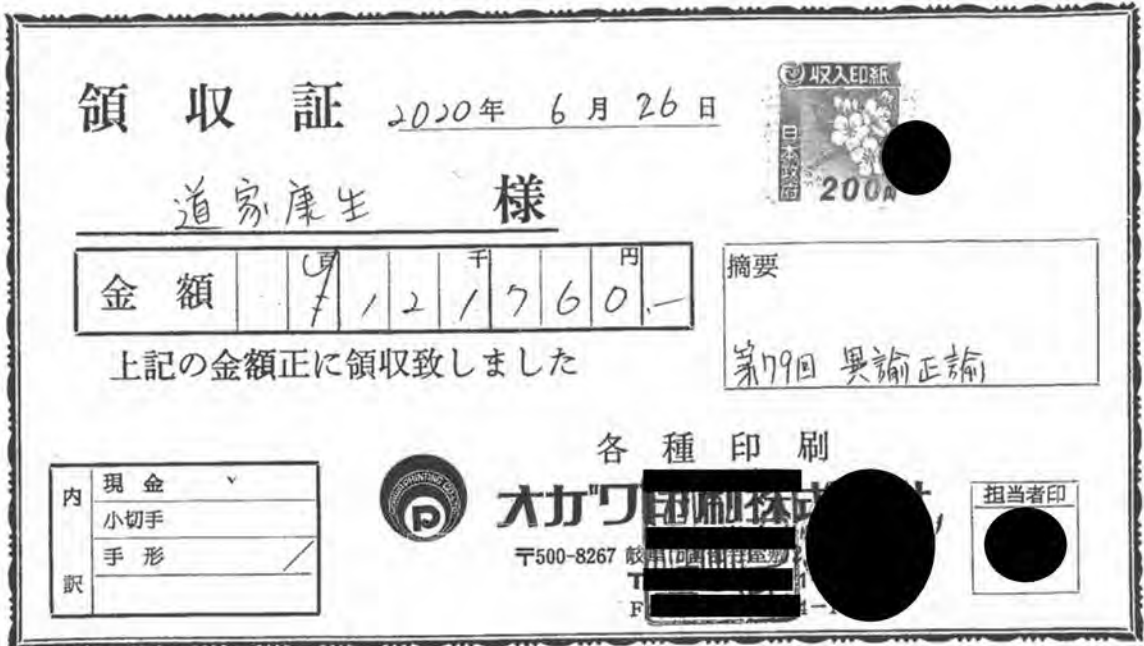 領収証 2020年 6月 26日
収入印紙
日本政府
200円
道家康生 様
金額 百 千 円
¥121760.-
上記の金額正に領収致しました
摘要
第79回 異論正論
各種印刷
オガワ印刷株式
〒500-8267 岐
内訳
現金
小切手
手形
担当者印